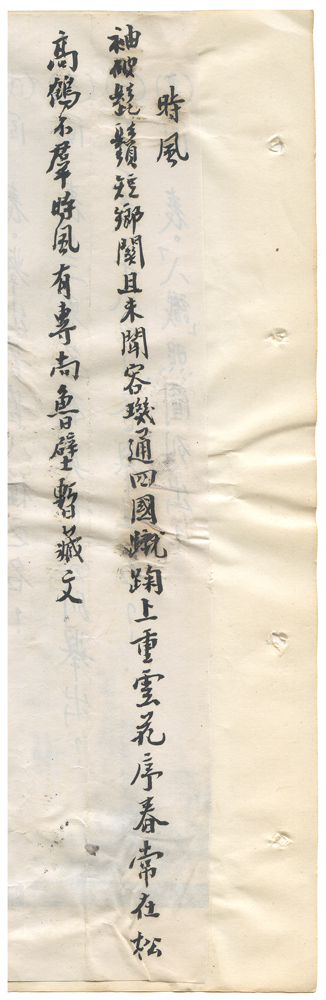 時風
袖破髭鬚短鄉關且未聞容璣通四國蹴踘上重雲花序春常在松
高鶴不羣時風有專尚魯壁暫藏文